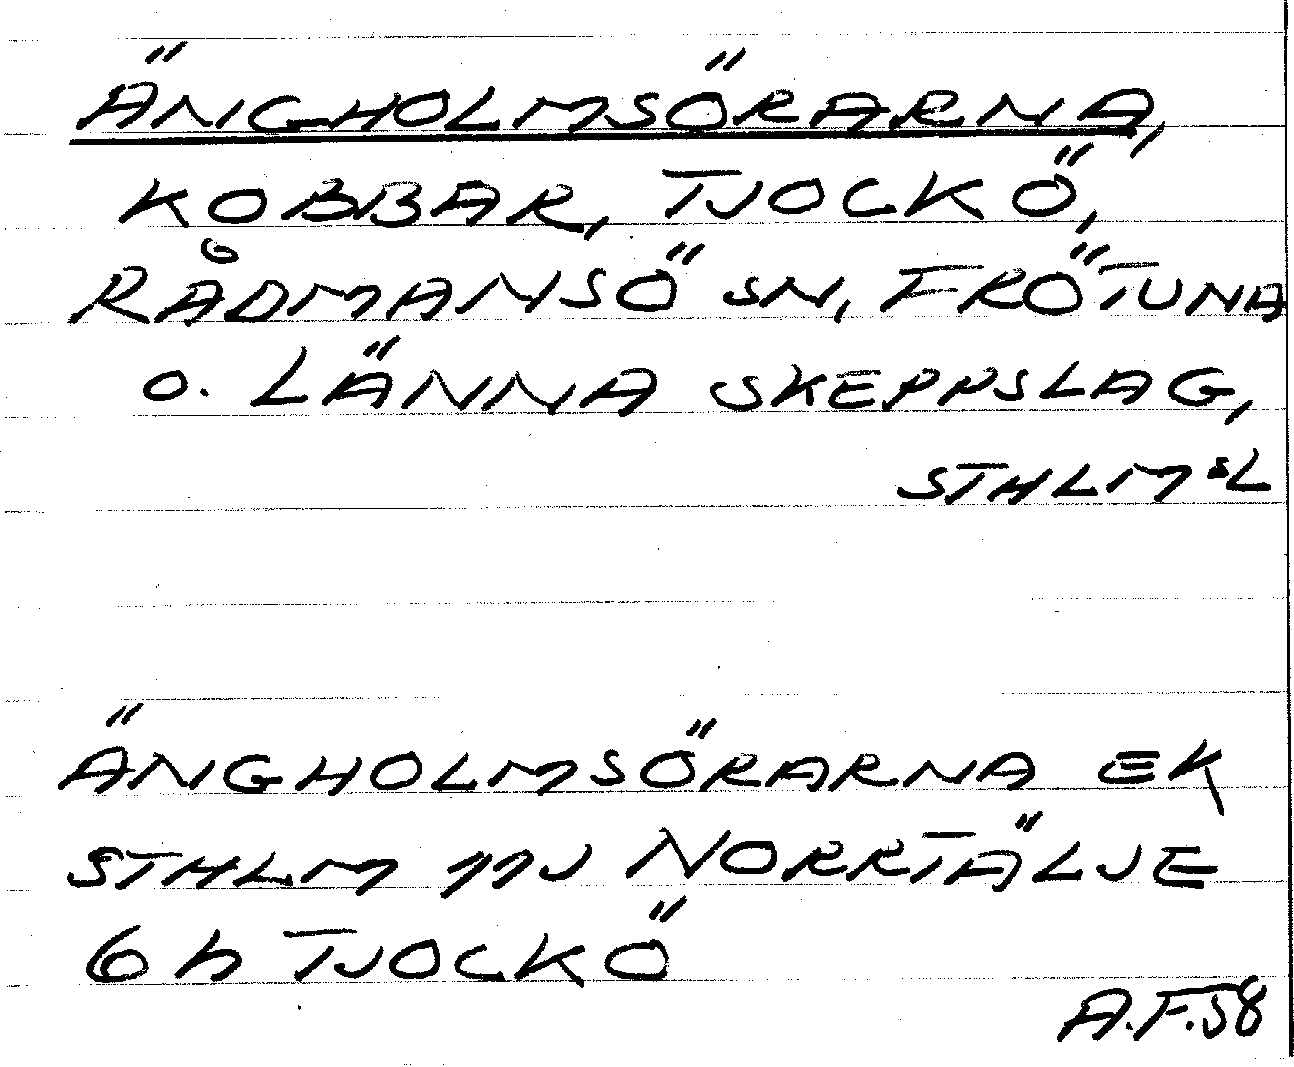 ÄNGHOLMSÖRARNA,
KOBBAR, TJOCKÖ,
RÅDMANSÖ SN, FRÖTUNA
O. LÄNNA SKEPPSLAG,
STHLMSL
ÄNGHOLMSÖRARNA EK
STHLM 11J NORRTÄLJE
6h TJOCKÖ
A.F.58